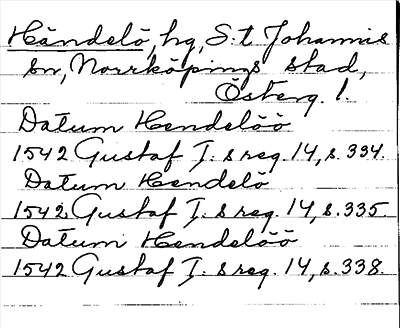 Händelö, hg, S:t Johannis
sn, Norrköpings stad,
Österg. l.
Datum Hendelöö
1542 Gustaf I:s reg. 14, s. 334.
Datum Hendelö
1542 Gustaf I:s reg. 14, s. 335.
Datum Hendelöö
1542 Gustaf I:s reg. 14, s. 338.